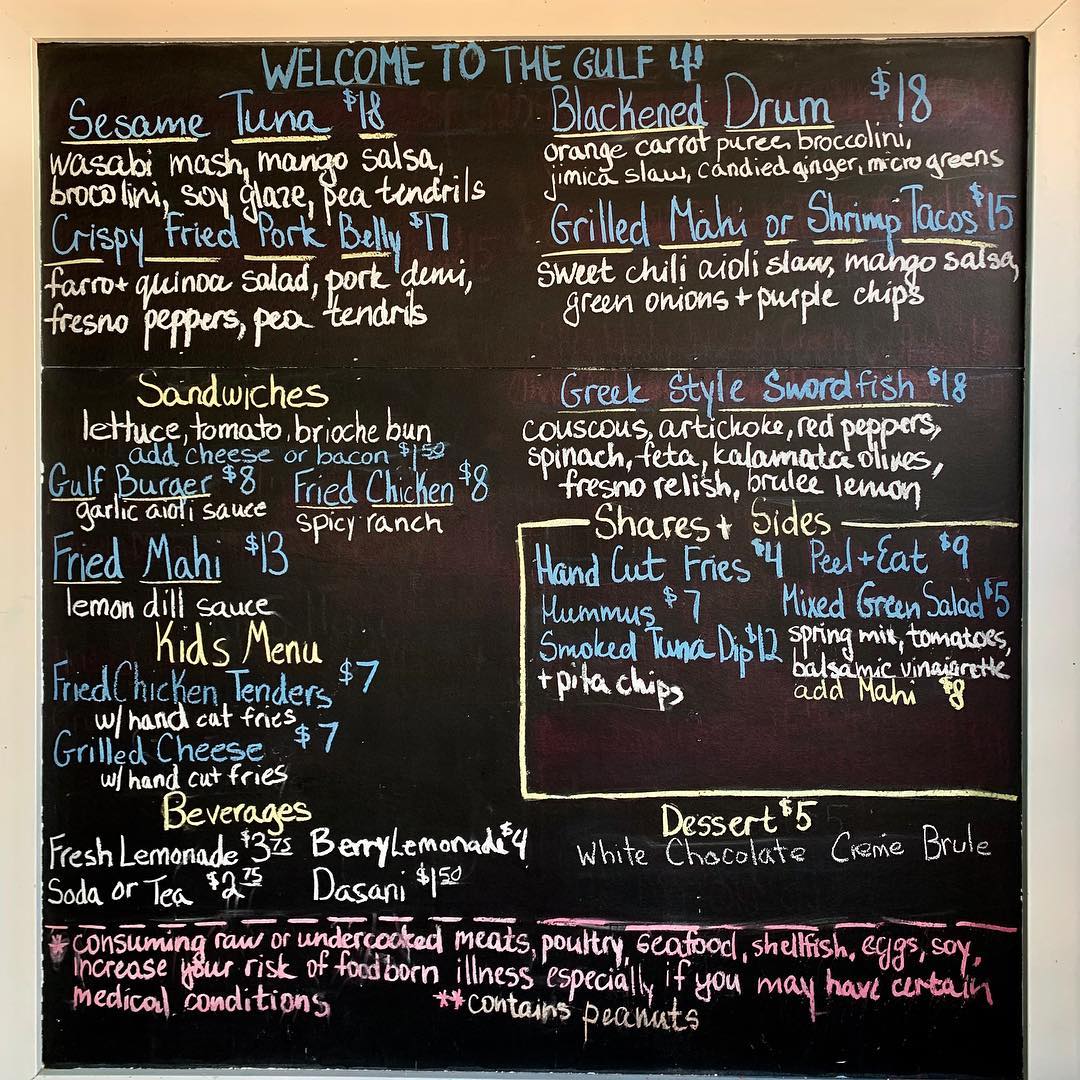 WELCOME TO THE GULF
Sesame Tuna $18
wasabi mash, mango salsa,
brocolini, soy glaze, pea tendrils
Crispy Fried Pork Belly $17
farro + quinoa salad, pork demi,
fresno peppers, pea tendrils
Blackened Drum $18
orange carrot puree, broccolini,
jimica slaw, candied ginger, micro greens
Grilled Mahi or Shrimp Tacos $15
sweet chili aioli slaw, mango salsa,
green onions + purple chips
Sandwiches
lettuce, tomato, brioche bun
add cheese or bacon $1.50
Gulf Burger $8 Fried Chicken $8
garlic aioli sauce spicy ranch
Fried Mahi $13
lemon dill sauce
Kids Menu
Fried Chicken Tenders $7
w/ hand cut fries
Grilled Cheese $7
w/ hand cut fries
Beverages
Fresh Lemonade $3.75 Berry Lemonade $4
Soda or Tea $2.75 Dasani $1.50
Greek Style Swordfish $18
couscous, artichoke, red peppers,
spinach, feta, kalamata olives,
fresno relish, brulee lemon
Shares + Sides
Hand Cut Fries $4 Peel + Eat $9
Hummus $7 Mixed Green Salad $5
Smoked Tuna Dip $12 spring mix, tomatoes,
+ pita chips balsamic vinaiarette
add Mahi $8
Dessert $5
White Chocolate Creme Brule
* consuming raw or undercooked meats, poultry, seafood, shellfish, eggs, soy,
increase your risk of foodborn illness especially if you may have certain
medical conditions **contains peanuts